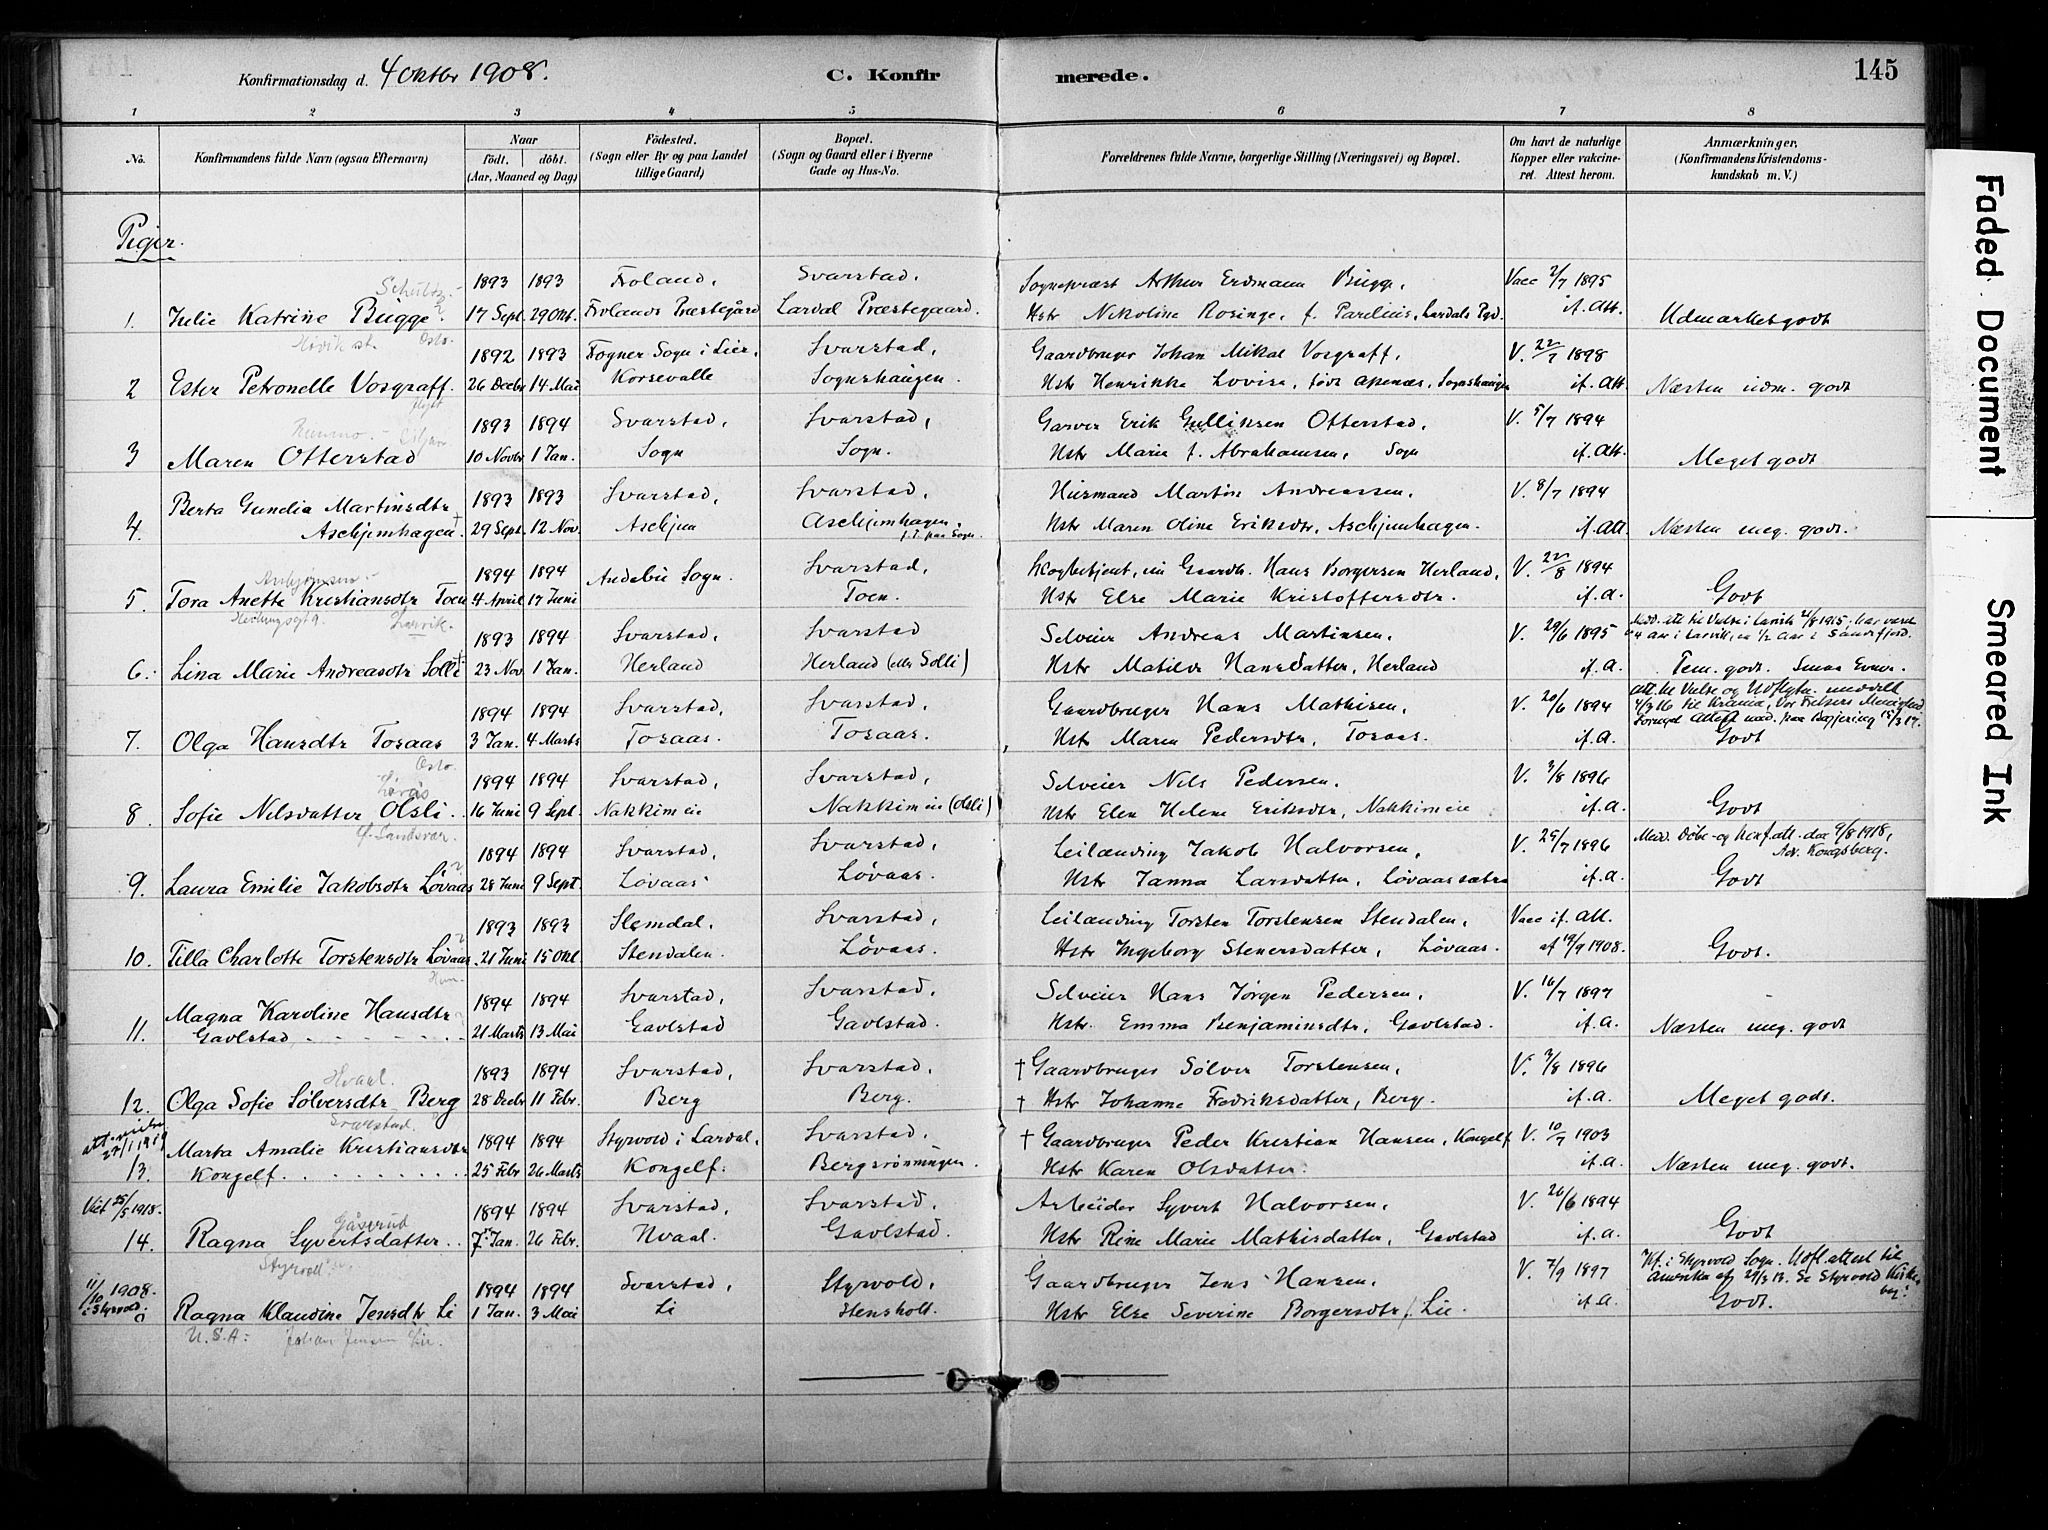 Konfirmationsdag d. 4 Oktbr 1908. C. Konfirmerede. 145
1 2 3 4 5 6 7 8
No. Konfirmandens fulde Navn (ogsaa Efternavn) Naar födt. döbt. (Aar, Maaned og Dag) Födested. (Sogn eller By og paa Landet tillige Gaard) Bopæl. (Sogn og Gaard eller i Byerne Gade og Hus-No. Forældrenes fulde Navne, borgerlige Stilling (Næringsvei) og Bopæl. Om havt de naturlige Kopper eller vakcineret. Attest herom. Anmærkninger, (Konfirmandens Kristendomskundskab m. V.)
Piger.
Schultz
1893 1893 Froland, Svarstad. Sogneprest Arthur Erdmann Bugge, Vacc 2/7 1895
1. Julie Katrine Bugge. 17 Sept. 29 Okt. Frolands Præstegård Lardal Præstegaard. Hstr Nikoline Rosinge, f. Parelius, Lardals Pgd. if. Att. Udmærket godt
Høvik st. Oslo.
1892 1893 Frogner Sogn i Lier, Svarstad, Gaardbruger Johan Mikal Vosgraff, V. 22/7 1898
2 Ester Petronelle Vosgraff. 26 Decbr 14 Mai Korsevalle Sognshaugen. Hstr Henrikke Lovise, født Apenæs, Sognshaugen if. Att. Næsten udm. godt
1893 1894 Svarstad, Svarstad, Garver Erik Gulliksen Otterstad, V. 5/7 1894
3 Maren Otterstad 10 Novbr 1 Jan. Sogn Sogn. Hstr Marie f. Abrahamsen, Sogn if. Att. Meget godt
Berta Gunelia Martinsdtr 1893 1893 Svarstad, Svarstad, Husmand Martin Andreassen, V. 8/7 1894
4. Askjemhagen. 29 Sept. 12 Nov. Askjem Askjemhagen, f.t. paa Sogn. Hstr Maren Oline Eriksdtr, Askjemhagen. if. Att. Næsten meg. godt.
1894 1894 Andebu Sogn. Svarstad, Skogbetjent, nu Gaardb. Hans Borgersen Herland, V. 22/8 1894
5. Tora Anette Kristiansdtr Toen 4 April 17 Juni Toen. Hstr Else Marie Kristoffersdtr. if. a. Godt
Larvik.
1893 1894 Svarstad, Svarstad Selveier Andreas Martinsen, V. 29/6 1895 Medd. att. til Vielse i Larvik 21/8 1915, har været 4 Aar i Larvik, nu 1/2 Aar i Sandefjord.
6. Lina Marie Andreasdtr Solli 23 Nov. 1 Jan. Herland Herland (eller Solli) Hstr Matilde Hansdatter, Herland if. a. Tem. godt. Smaa Evner.
1894 1894 Svarstad, Svarstad, Gaardbruger Hans Mathisen, V. 20/6 1894 Att. til Vielse og Udflytn. meddelt 4/3 16 til Krania, Vor Frelsers Menighed
7. Olga Hansdtr Tosaas 3 Jan. 4 Marts Tosaas. Tosaas. Hstr Maren Pedersdtr, Tosaas. if. a. Godt
Oslo.
1894 1894 Svarstad, Svarstad, Selveier Nils Pedersen. V. 3/8 1896
8. Sofie Nilsdatter Olsli. 16 Juni 9 Sept. Nakkim eie Nakkim eie (Olsli) Hstr Elen Helene Eriksdtr, Nakkimeie if. a. Godt
Ø. Sandsvær.
1894 1894 Svarstad, Svarstad, Leilænding Jakob Halvorsen, V. 25/7 1896 Medd. Døbe- og Konf. att. den 9/8 1918, Adr. Kongsberg.
9. Laura Emilie Jakobsdtr Løvaas 28 Juni 9 Sept. Løvaas Løvaas. Hstr Janna Larsdatter, Løvaassætra if. a. Godt
1893 1893 Slemdal, Svarstad, Leilænding Torsten Torstensen Stendalen, Vacc if. Att.
10. Tilla Charlotte Torstensdtr Løvaas 21 Juni 15 Okt. Stendalen. Løvaas. Hstr Ingeborg Stenersdatter, Løvaas. af 19/9 1908. Godt.
Magna Karoline Hansdtr 1894 1894 Svarstad, Svarstad, Selveier Hans Jørgen Pedersen, V. 16/7 1897
11. Gavlstad 21 Marts 13 Mai Gavlstad Gavlstad. Hstr. Emma Benjaminsdtr, Gavlstad. if. a. Næsten meg. godt
Hvaal.
1893 1894 Svarstad, Svarstad, † Gaardbruger Sølver Torstensen, V. 3/8 1896
12. Olga Sofie Sølversdtr Berg 28 Decbr 11 Febr. Berg Berg. † Hstr Johanne Fredriksdatter, Berg. if. a. Meget godt.
Svarstad.
27/1 1919 Marta Amalie Kristiansdtr 1894 1894 Styrvold i Lardal, Svarstad, † Gaardbruger Peder Kristian Hansen, Kongelf V. 10/7 1903
13. Kongelf. 25 Febr 26 Marts Kongelf. Bergsrønningen. Hstr Karen Olsdatter. if. a. Næsten meg. godt.
Viet 25/5 1918. Gåserud 1894 1894 Svarstad, Svarstad. Arbeider Syvert Halvorsen, V. 26/6 1894
14. Ragna Syvertsdatter 7 Jan. 26 Febr. Hvaal. Gavlstad. Hstr Rine Marie Mathisdatter, Gavlstad if. a. Godt
Styrvoll
11/10 1908. i Styrvold 1894 1894 Svarstad, Styrvold, Gaardbruger Jens Hansen, V. 7/9 1897 Kf. i Styrvold Sogn. Udfl. attest til Amerika af 29/3 13. Se Styrvold Kirkebog.
Ragna Klaudine Jensdtr Li 1 Jan. 3 Mai Li Stensholt. Hstr Else Severine Borgersdtr, Lie. if. a. Godt.
U.S.A: Johan Jensen Lie.
Faded Document
Smeared Ink